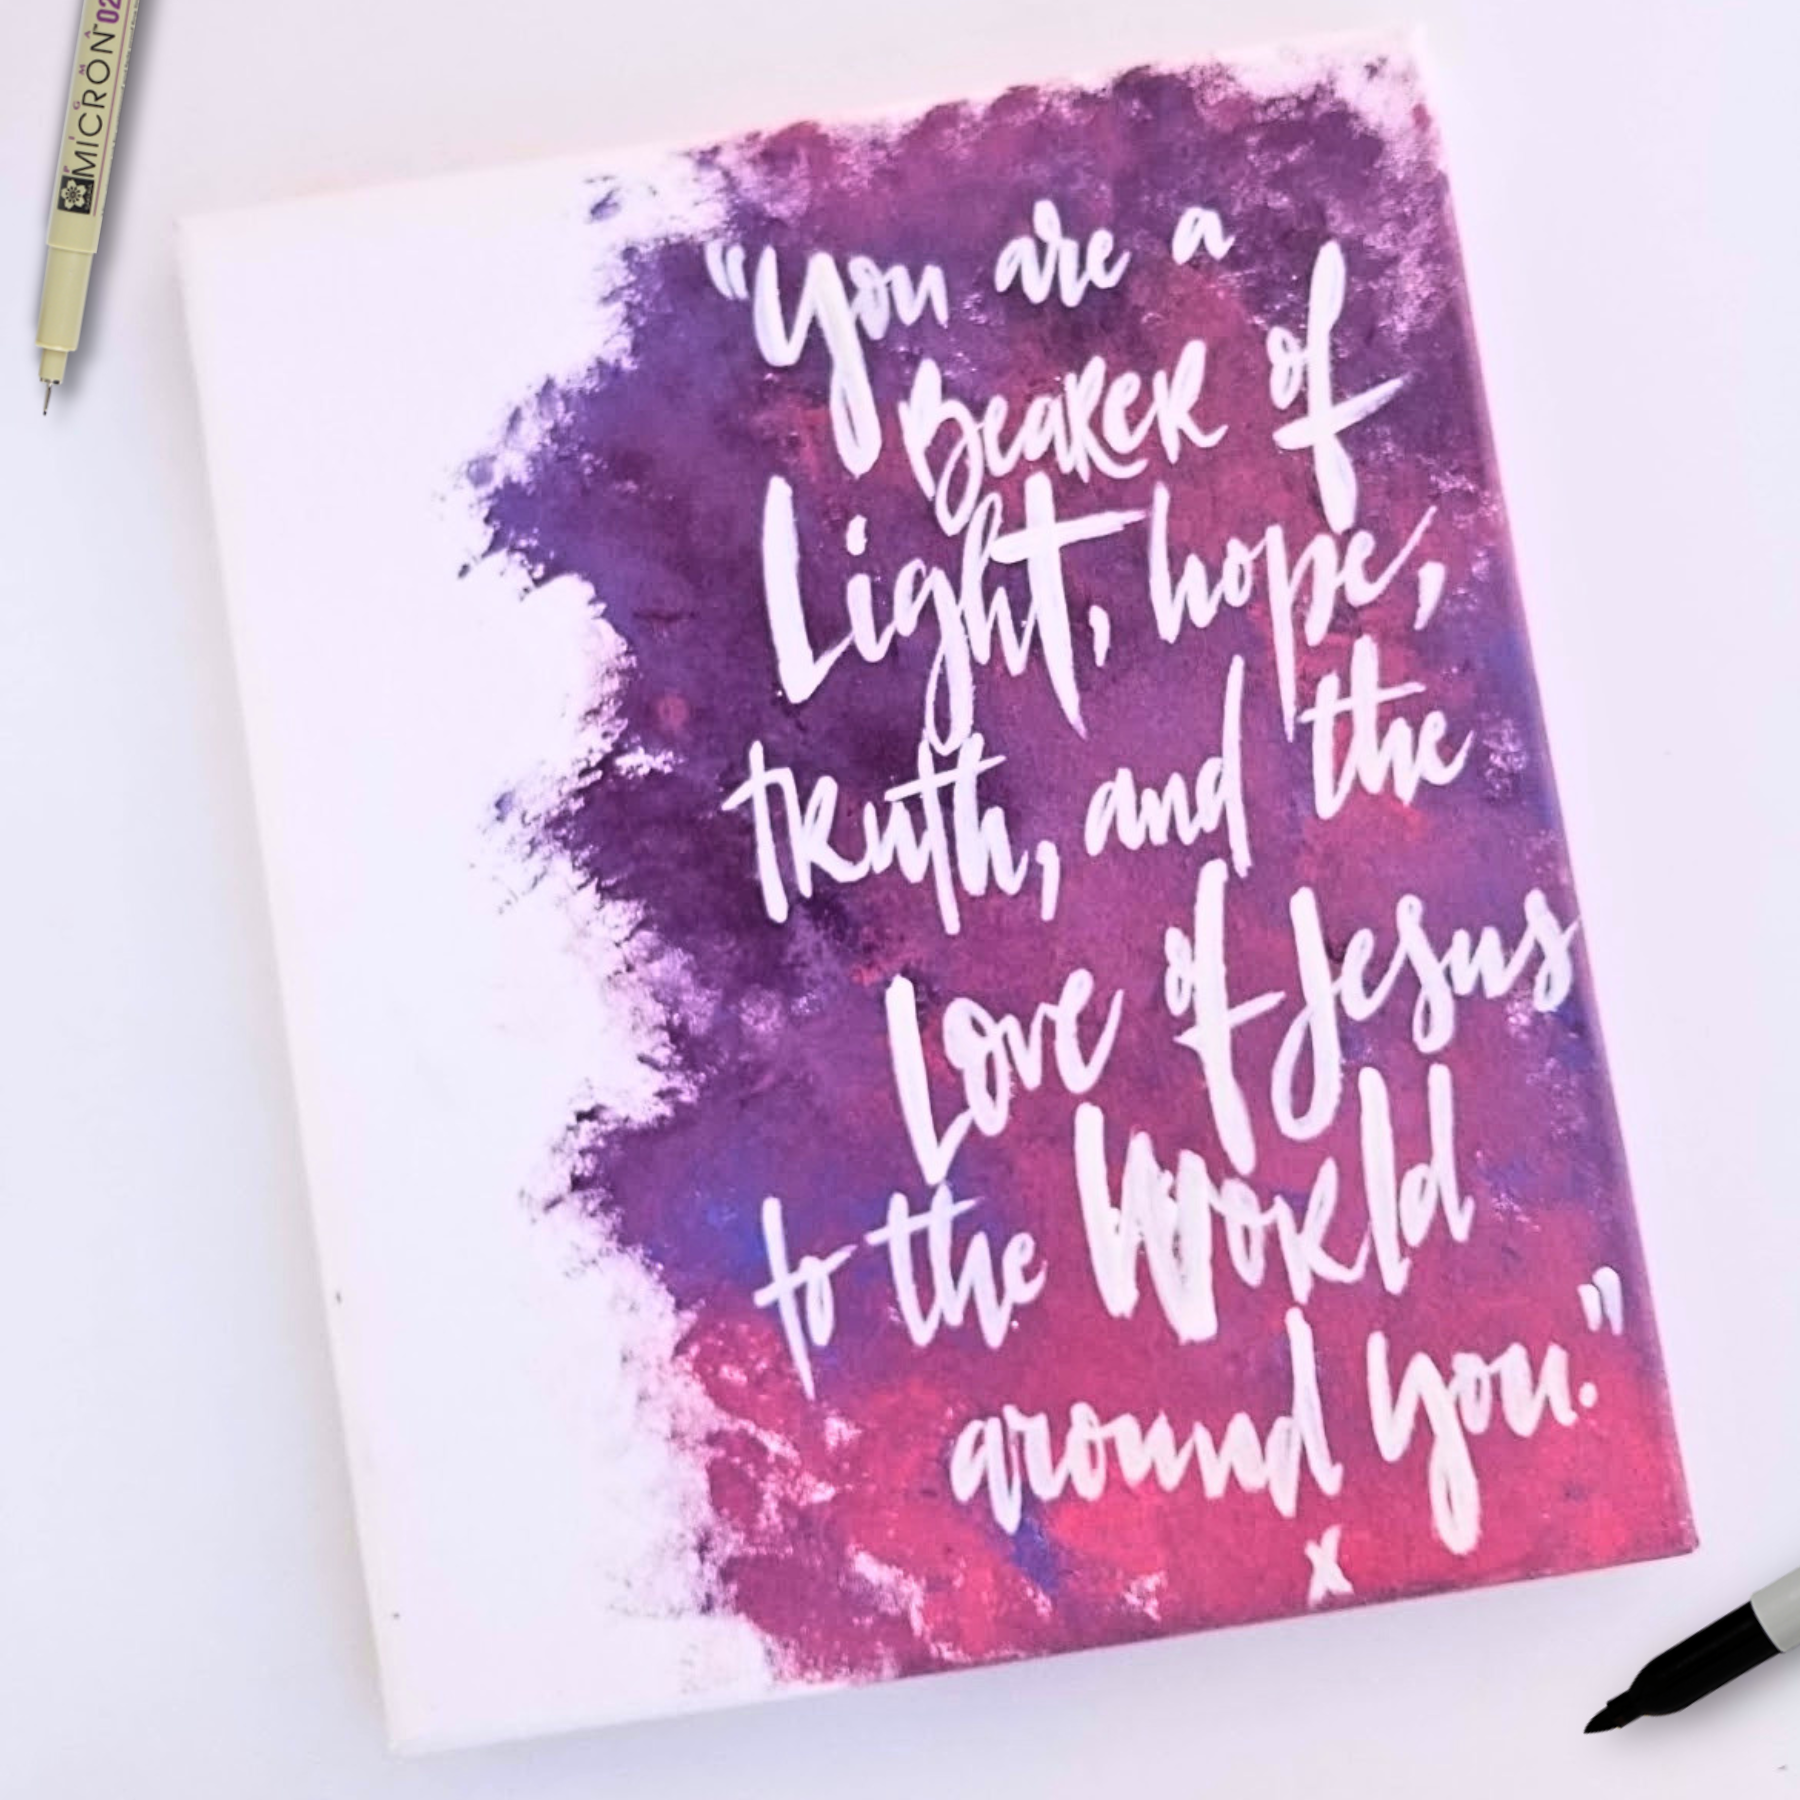 PIGMA
MICRON™ 02
"You are a
BeaReR of
Light, hope,
tRuth, and the
Love of Jesus
to the WoRld
around you."
x